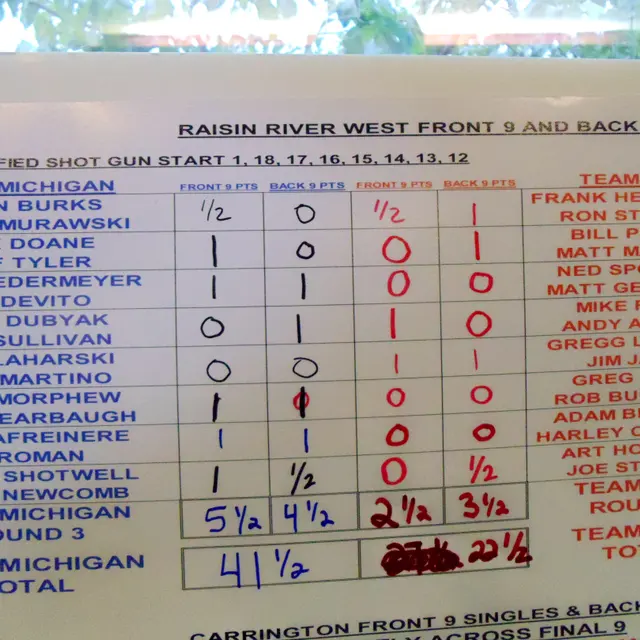 RAISIN RIVER WEST FRONT 9 AND BACK
FIED SHOT GUN START 1, 18, 17, 16, 15, 14, 13, 12
MICHIGAN FRONT 9 PTS BACK 9 PTS FRONT 9 PTS BACK 9 PTS TEAM
N BURKS 1/2 0 1/2 1 FRANK HE
MURAWSKI RON ST
DOANE 1 0 0 1 BILL P
F TYLER MATT M
EDERMEYER 1 1 0 0 NED SPO
DEVITO MATT GE
DUBYAK 0 1 1 0 MIKE F
SULLIVAN ANDY A
LAHARSKI 0 0 1 1 GREGG L
MARTINO JIM J
MORPHEW 1 1 0 0 GREG
EARBAUGH ROB BU
AFREINERE 1 1 0 0 ADAM B
ROMAN HARLEY C
SHOTWELL 1 1/2 0 1/2 ART HO
NEWCOMB JOE ST
MICHIGAN 5 1/2 4 1/2 2 1/2 3 1/2 TEAM
OUND 3 ROU
MICHIGAN 41 1/2 22 1/2 TEAM
OTAL TO
CARRINGTON FRONT 9 SINGLES & BACK
LY ACROSS FINAL 9